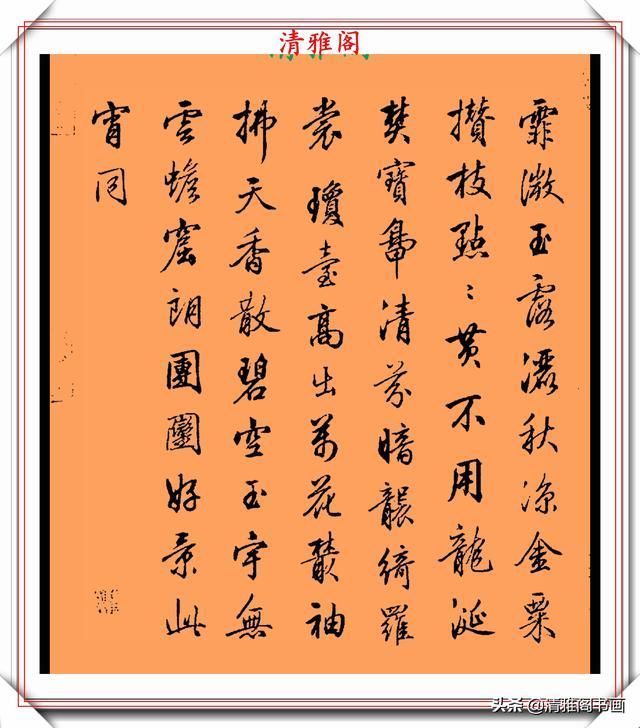 清雅阁
霏微玉露灑秋凉金粟
攢枝點〻黄不用龍涎
焚寶鼎清芬暗襲綺羅
裳瓊臺高出萬花叢袖
拂天香散碧空玉宇無
雲蟾窟朗團圞好景此
宵同
头条 @清雅阁书画